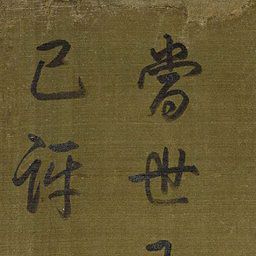 當世
已許